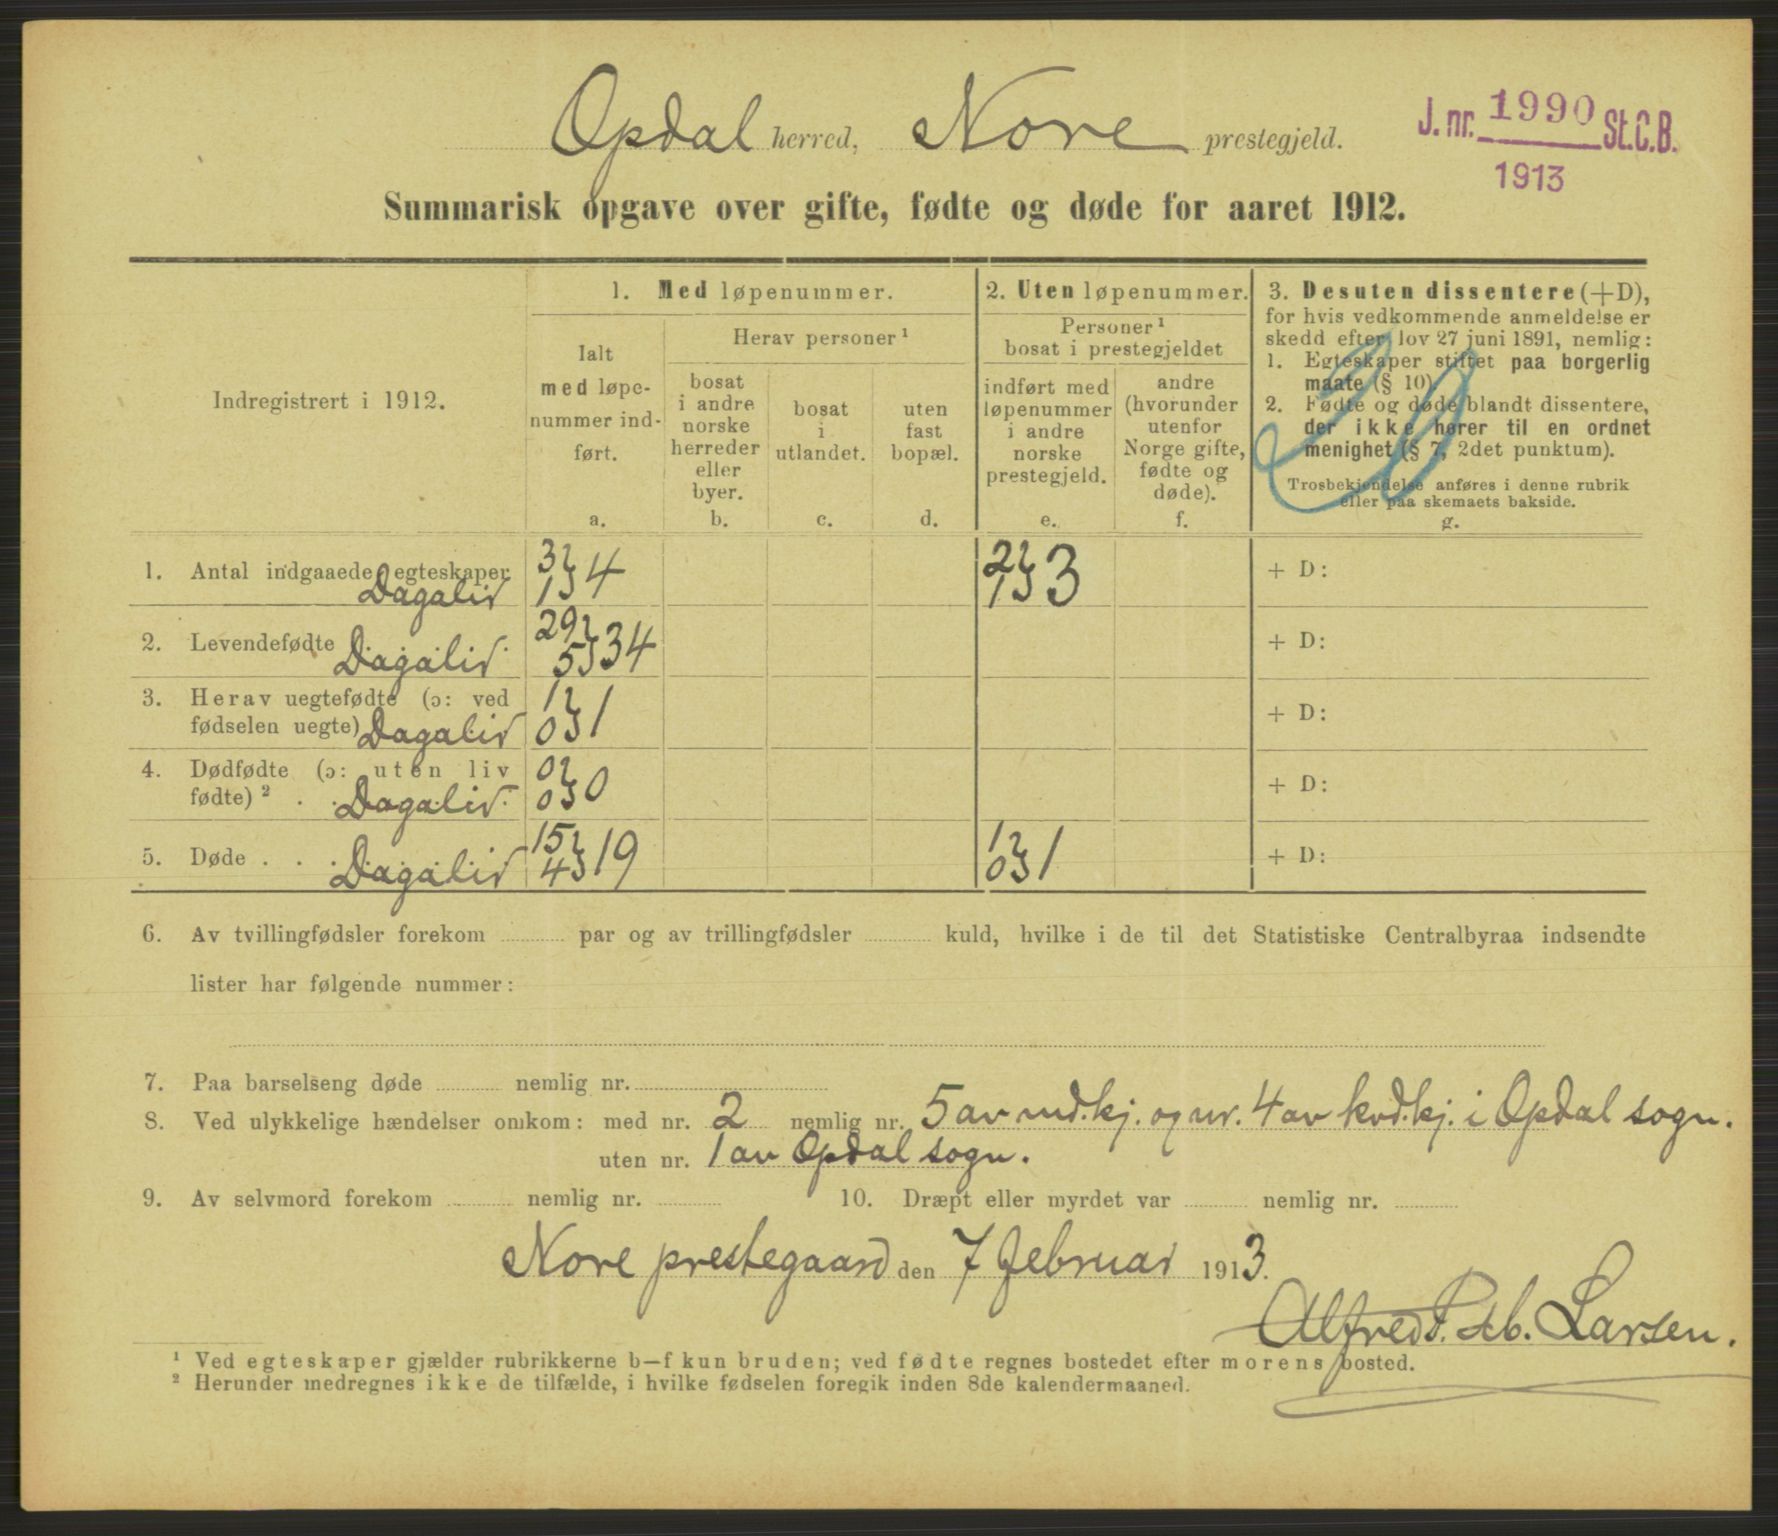 Opdal herred, Nore prestegjeld.
J. nr. 1990 St.C.B.
1913
Summarisk opgave over gifte, fødte og døde for aaret 1912.
Indregistrert i 1912.
1. Med løpenummer.
Ialt
med løpe-
nummer ind-
ført.
a.
Herav personer ¹
bosat
i andre
norske
herreder
eller
byer.
b.
bosat
i
utlandet.
c.
uten
fast
bopæl.
d.
2. Uten løpenummer.
Personer ¹
bosat i prestegjeldet
indført med
løpenummer
i andre
norske
prestegjeld.
e.
andre
(hvorunder
utenfor
Norge gifte,
fødte og
døde).
f.
3. Desuten dissentere (+D),
for hvis vedkommende anmeldelse er
skedd efter lov 27 juni 1891, nemlig:
1. Egteskaper stiftet paa borgerlig
maate (§ 10).
2. Fødte og døde blandt dissentere,
der ikke hører til en ordnet
menighet (§ 7, 2det punktum).
Trosbekjendelse anføres i denne rubrik
eller paa skemaets bakside.
g.
1. Antal indgaaede egteskaper 3 } 4 2 } 3 + D:
Dagalid 1 1
2. Levendefødte 29 } 34 + D:
Dagalid 5
3. Herav uegtefødte (ɔ: ved 1 } 1 + D:
fødselen uegte) Dagalid 0
4. Dødfødte (ɔ: uten liv 0 } 0 + D:
fødte) ² . . Dagalid 0
5. Døde . . . 15 } 19 1 } 1 + D:
Dagalid 4 0
6. Av tvillingfødsler forekom par og av trillingfødsler kuld, hvilke i de til det Statistiske Centralbyraa indsendte
lister har følgende nummer:
7. Paa barselseng døde nemlig nr.
8. Ved ulykkelige hændelser omkom: med nr. 2 nemlig nr. 5 av md.kj. og nr. 4 av kvd.kj. i Opdal sogn.
uten nr. 1 av Opdal sogn.
9. Av selvmord forekom nemlig nr. 10. Dræpt eller myrdet var nemlig nr.
Nore prestegaard den 7 februar 1913.
Alfred P. Larsen.
¹ Ved egteskaper gjælder rubrikkerne b—f kun bruden; ved fødte regnes bostedet efter morens bosted.
² Herunder medregnes ikke de tilfælde, i hvilke fødselen foregik inden 8de kalendermaaned.